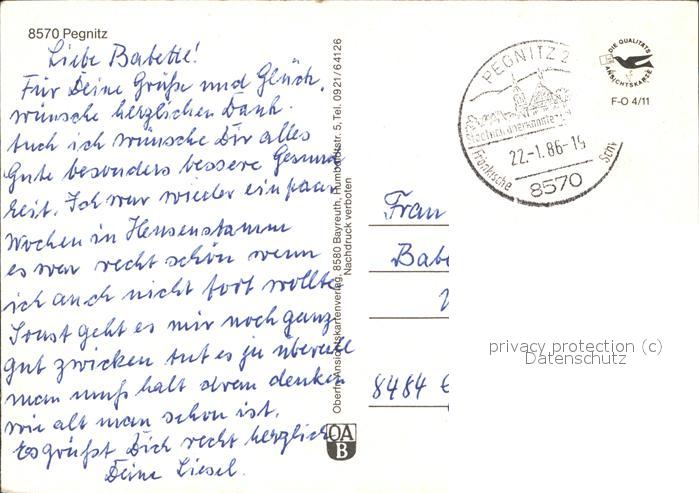 8570 Pegnitz
Liebe Babette!
Für Deine Grüße und Glück-
wünsche herzlichen Dank.
Auch ich wünsche Dir alles
Gute besonders bessere Gesund
heit. Ich war wieder ein paar
Wochen in
es war recht schön wenn
ich auch nicht fort wollte
Sonst geht es mir noch ganz
gut zwicken tut es ja überall
man muß halt dran denken
wie alt man schon ist.
Es grüßt Dich recht herzlich
Deine Liesel.
Oberfr. Ansichtskartenverlag, 8580 Bayreuth, Humboldtstr. 5, Tel. 0921/64126
Nachdruck verboten
OA
B
PEGNITZ 2
Staatlich anerkannter
22.-1.86-15
Fränkische Schw
8570
DIE QUALITÄTS
ANSICHTSKARTE
F-O 4/11
Frau
Babe
8484
privacy protection (c)
Datenschutz